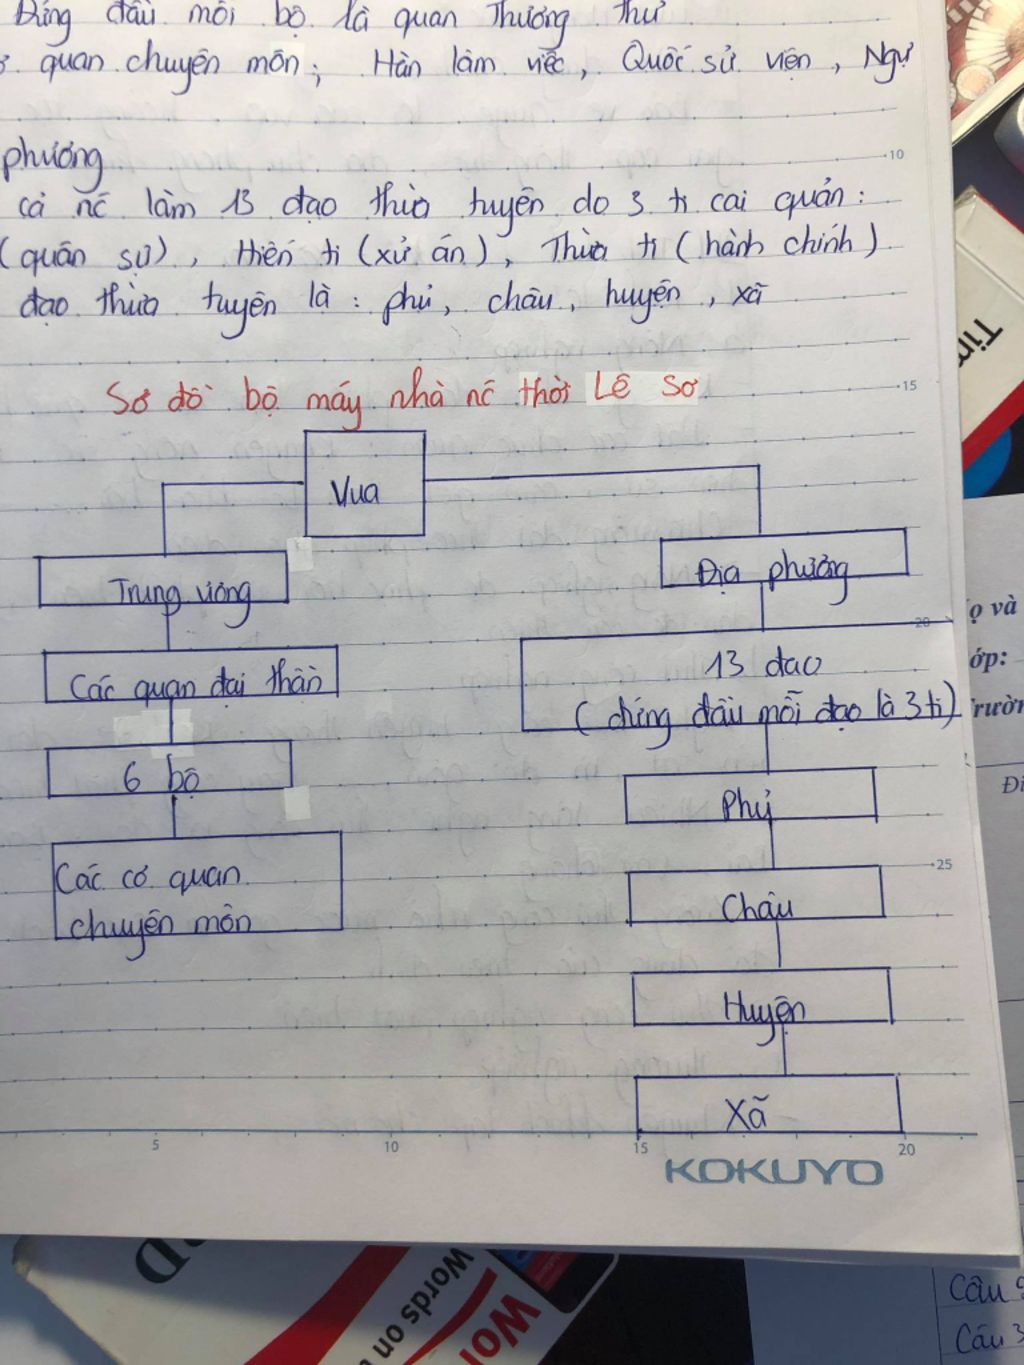 Đứng đầu mỗi bộ là quan Thương thư
quan chuyên môn; Hàn lâm viêc, Quốc sử viện, Ngự
10
phương
cả nc làm 13 đạo thừa tuyên do 3 ti cai quản:
(quân sự), Hiến ti (xử án), Thừa ti (hành chính)
đạo thừa tuyên là: phủ, châu, huyện, xã
Sơ đồ bộ máy nhà nc thời Lê Sơ
15
Vua
Trung ương
Địa phương
20
Các quan đại thần
13 đao
(chứng đầu mỗi đạo là 3 ti)
6 bộ
Phủ
Các cơ quan
chuyên môn
25
Châu
Huyện
Xã
5 10 15 20
KOKUYO
ọ và
ớp:
Trườn
Words on
Câu
Câu 3